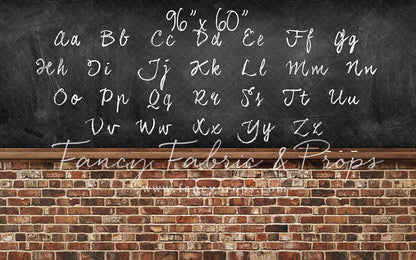 96"x 60"
Aa Bb Cc Dd Ee Ff Gg
Hh Ii Jj Kk Ll Mm Nn
Oo Pp Qq Rr Ss Tt Uu
Vv Ww Xx Yy Zz
Fancy Fabric & Props
www.fancyprops.com